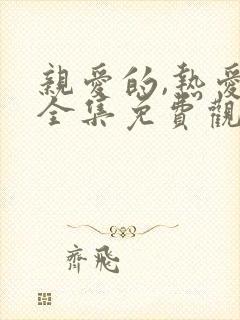 親愛的,熱愛
全集免費觀
齊飛